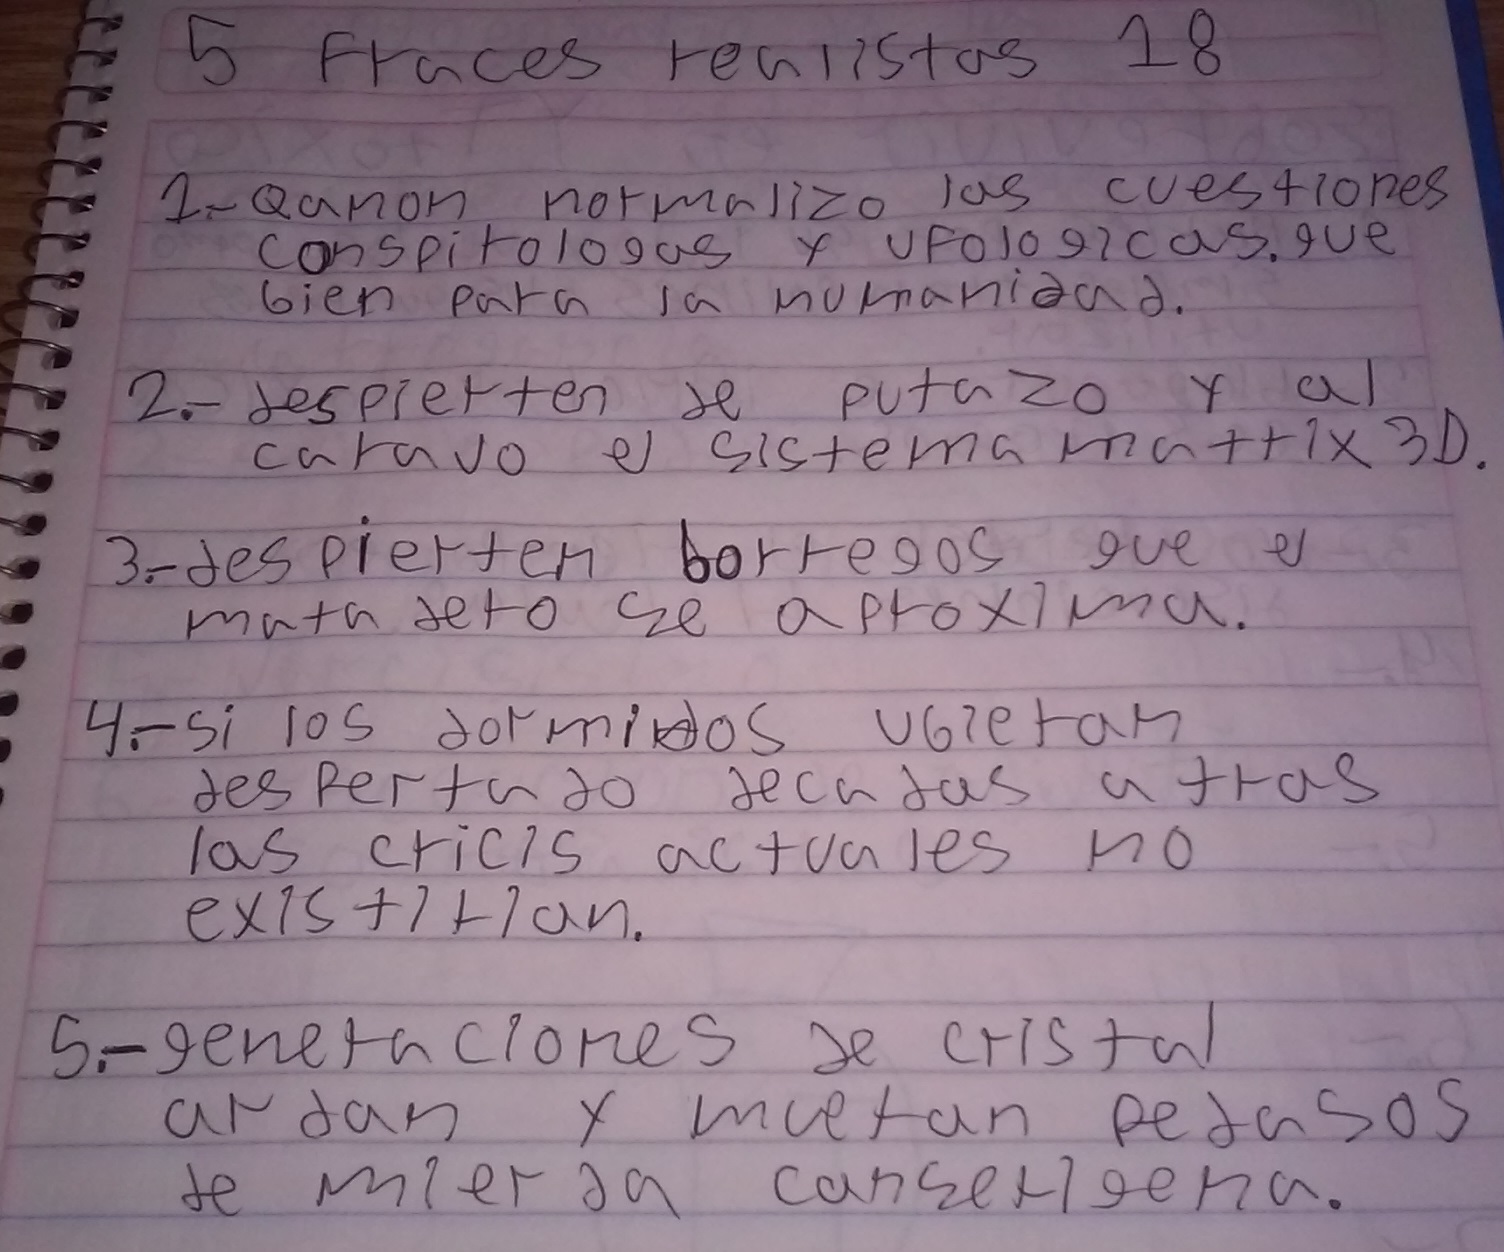 5 Fraces realistas 18
1.- Qanon normalizo las cuestiones
conspirologas y ufologicas. que
bien para la humanidad.
2.- despierten de putazo y al
carajo el sistema matrix 3D.
3.- despierten borregos que el
matadero se aproxima.
4.- si los dormidos ubieran
despertado decadas atras
las cricis actuales no
existirian.
5.- generaciones de cristal
ardan y mueran pedasos
de mierda canserigena.